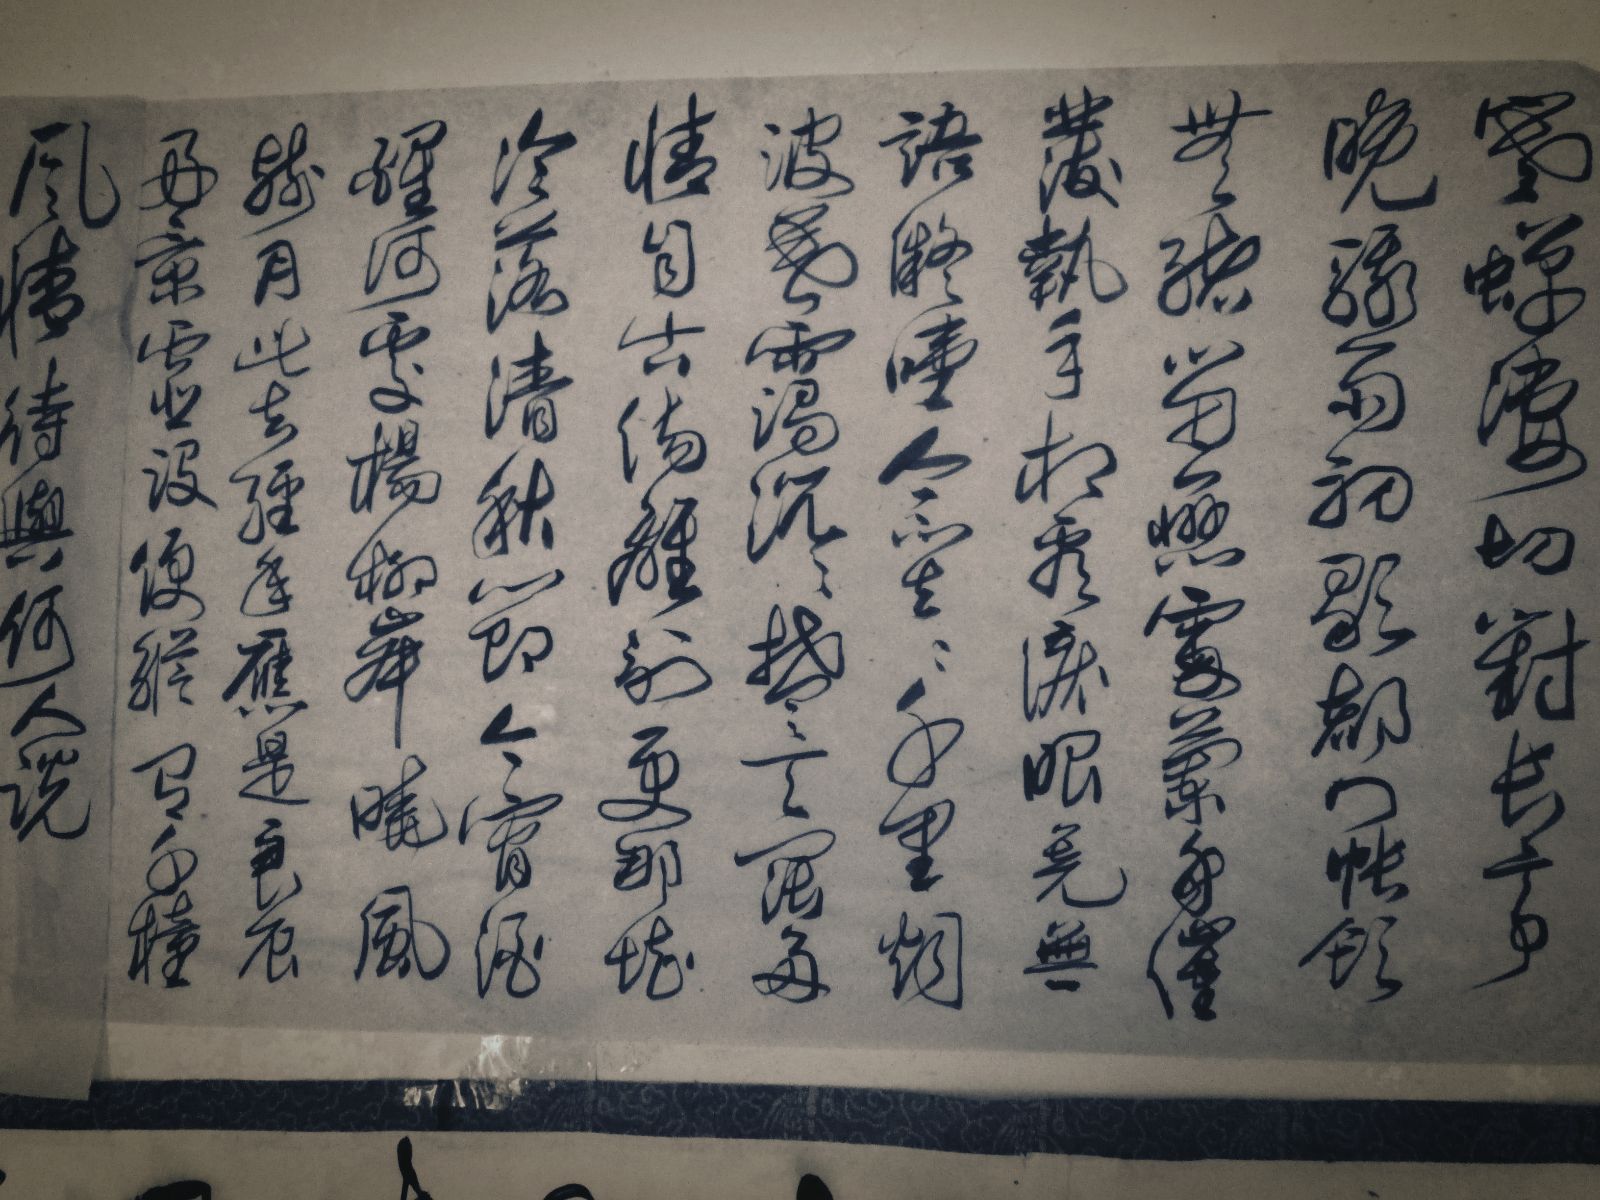 寒蟬淒切對長亭
晚驟雨初歇都門帳飲
無緒留戀處蘭舟催
發執手相看淚眼竟無
語凝噎念去〻千里煙
波暮靄沉〻楚天闊多
情自古傷離別更那堪
冷落清秋節今宵酒
醒何處楊柳岸曉風
殘月此去經年應是良辰
好景虛設便縱有千種
風情待與何人說